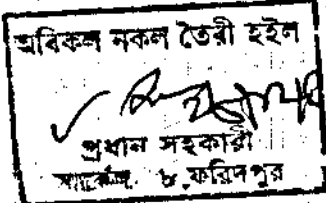 অবিকল নকল তৈরী হইল
প্রধান সহকারী
সার্কেল ৮, ফরিদপুর